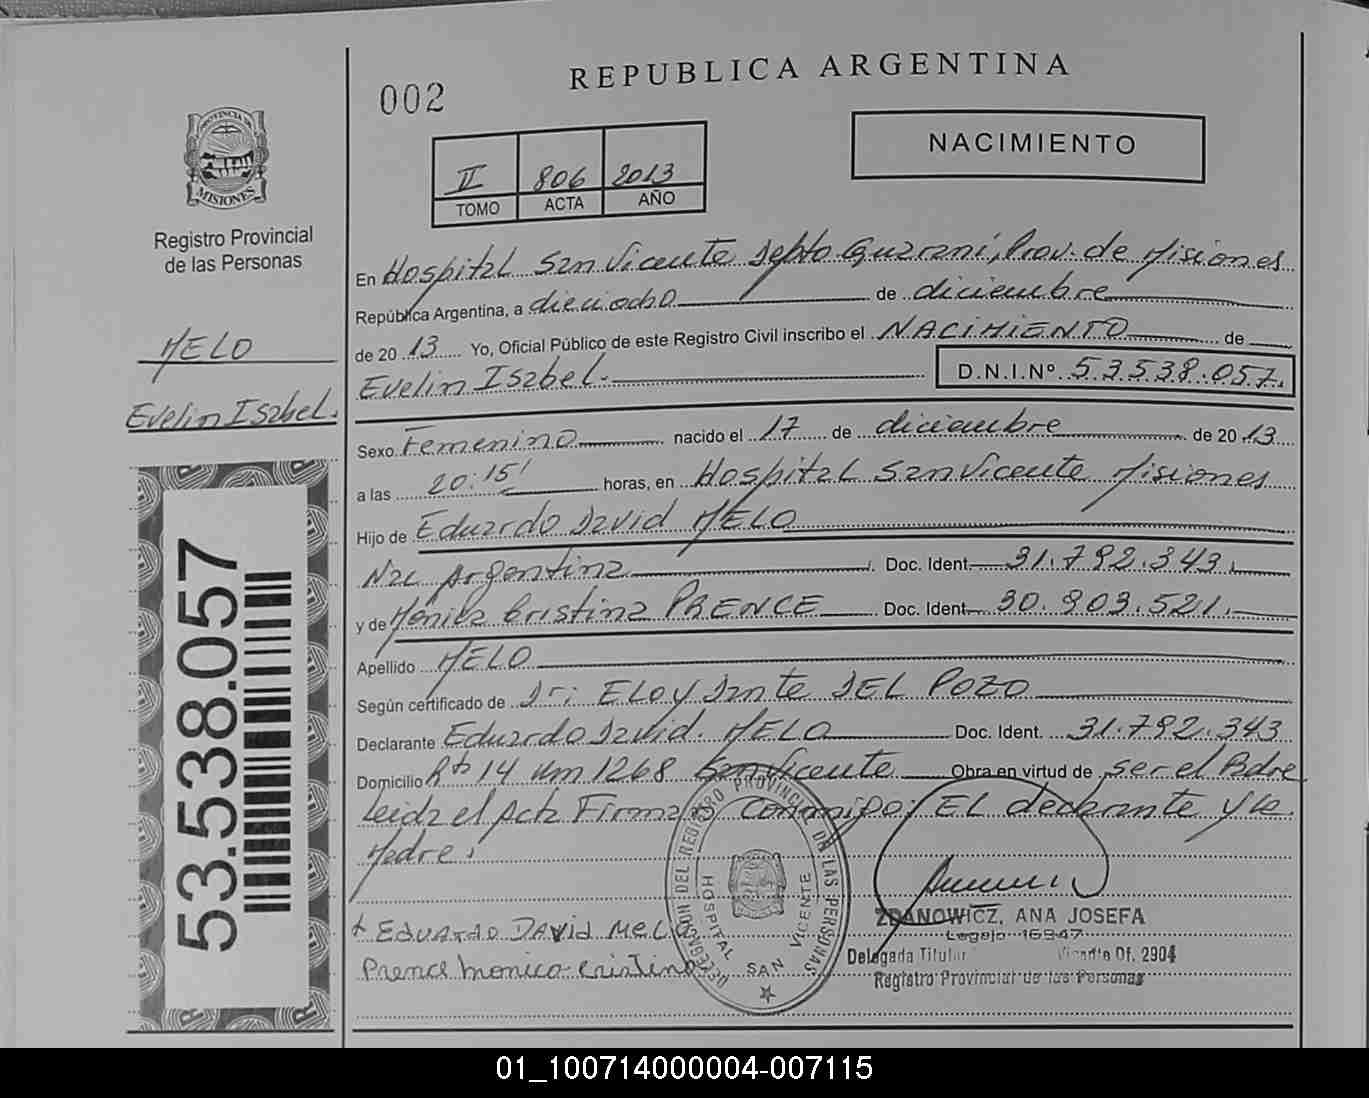 002
REPUBLICA ARGENTINA
NACIMIENTO
II 806 2013
TOMO ACTA AÑO
PROVINCIA DE
MISIONES
Registro Provincial
de las Personas
MELO
Evelin Isabel.
53.538.057
En Hospital San Vicente Depto Guaraní, Prov. de Misiones
República Argentina, a dieciocho de diciembre
de 20 13 Yo, Oficial Público de este Registro Civil inscribo el NACIMIENTO de
Evelin Isabel. D.N.I.Nº 53.538.057.
Sexo Femenino nacido el 17 de diciembre de 20 13
a las 20:15' horas, en Hospital San Vicente Misiones
Hijo de Eduardo David MELO
Nac Argentina Doc. Ident. 31.792.343.
y de Mónica Cristina PRENCE Doc. Ident. 30.903.521.
Apellido MELO
Según certificado de Dr: ELOY Dante DEL POZO
Declarante Eduardo David. MELO Doc. Ident. 31.792.343
Domicilio Rta 14 Km 1268 San Vicente Obra en virtud de ser el Padre
Leida el Acta Firman Conmigo: EL declarante y la
Madre.
+ EDUARDO DAVID MELO
Prence monica cristina
DELEGACION DEL REGISTRO PROVINCIAL DE LAS PERSONAS
HOSPITAL SAN VICENTE
ZDANOWICZ, ANA JOSEFA
Legajo 16947
Delegada Titular Vicente Of. 2904
Registro Provincial de las Personas
01_100714000004-007115